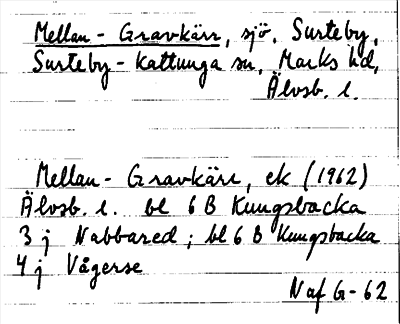 Mellan-Gravkärr, sjö, Surteby,
Surteby-Kattunga sn, Marks hd,
Älvsb. l.
Mellan-Gravkärr, ek (1962)
Älvsb. l. bl 6 B Kungsbacka
3 j Nabbared; bl 6 B Kungsbacka
4 j Vågerse
Naf G-62